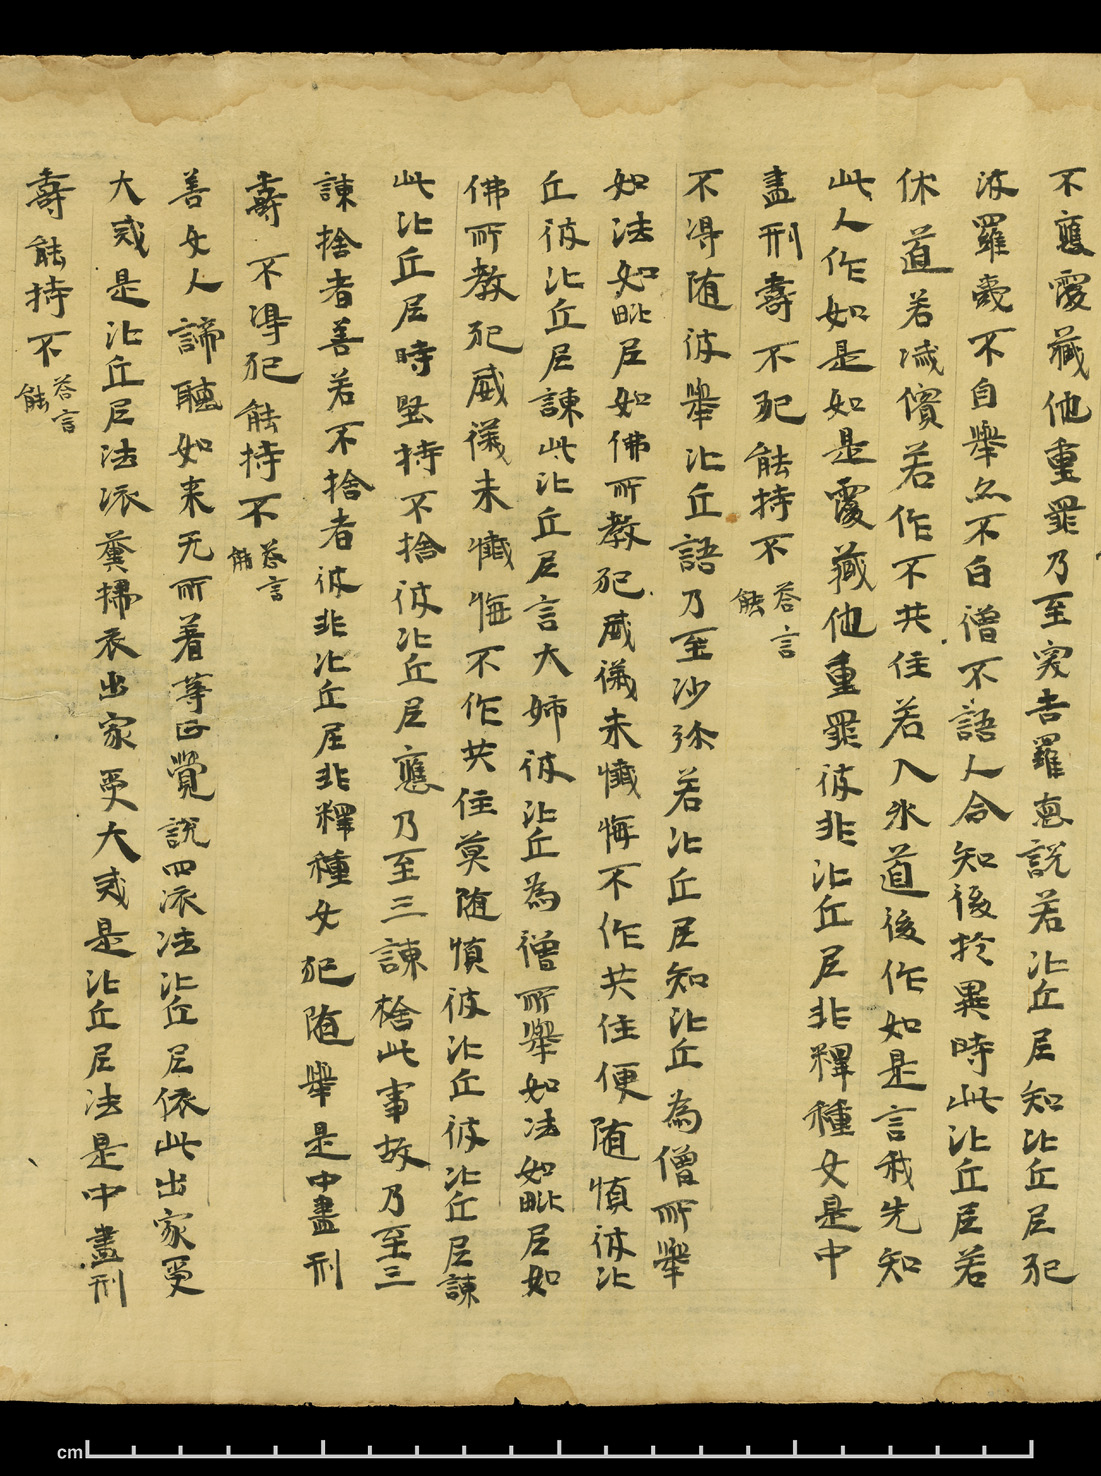 不應覆藏他重罪乃至突吉羅惡說若比丘尼知比丘尼犯
波羅夷不自舉亦不白僧不語人令知後於異時此比丘尼若
休道若滅擯若作不共住若入外道後作如是言我先知
此人作如是如是覆藏他重罪彼非比丘尼非釋種女是中
盡形壽不犯能持不荅言能
不得随彼舉比丘語乃至沙弥若比丘尼知比丘為僧所舉
如法如毗尼如佛所教犯威儀未懺悔不作共住便随慎彼比
丘彼比丘尼諫此比丘尼言大姊彼比丘為僧所舉如法如毗尼如
佛所教犯威儀未懺悔不作共住莫随慎彼比丘彼比丘尼諫
此比丘尼時堅持不捨彼比丘尼應乃至三諫捨此事故乃至三
諫捨者善若不捨者彼非比丘尼非釋種女犯随舉是中盡形
壽不得犯能持不荅言能
善女人諦聽如来无所著等正覺說四依法比丘尼依此出家受
大戒是比丘尼法依糞掃衣出家受大戒是比丘尼法是中盡形
壽能持不荅言能